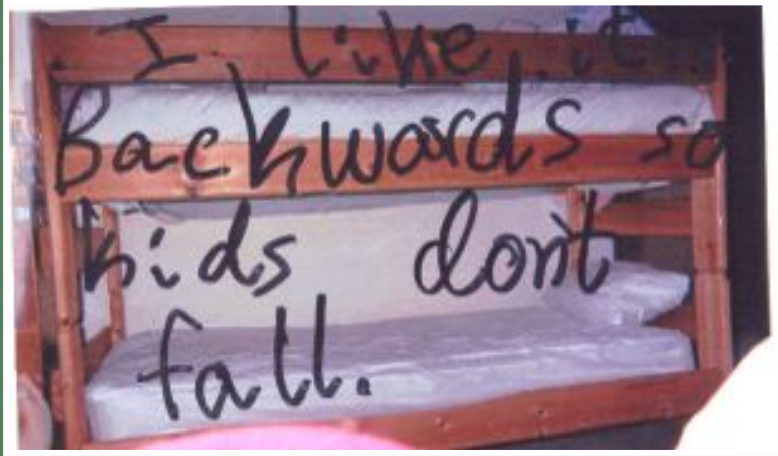 I like it
Backwards so
kids don't
fall.